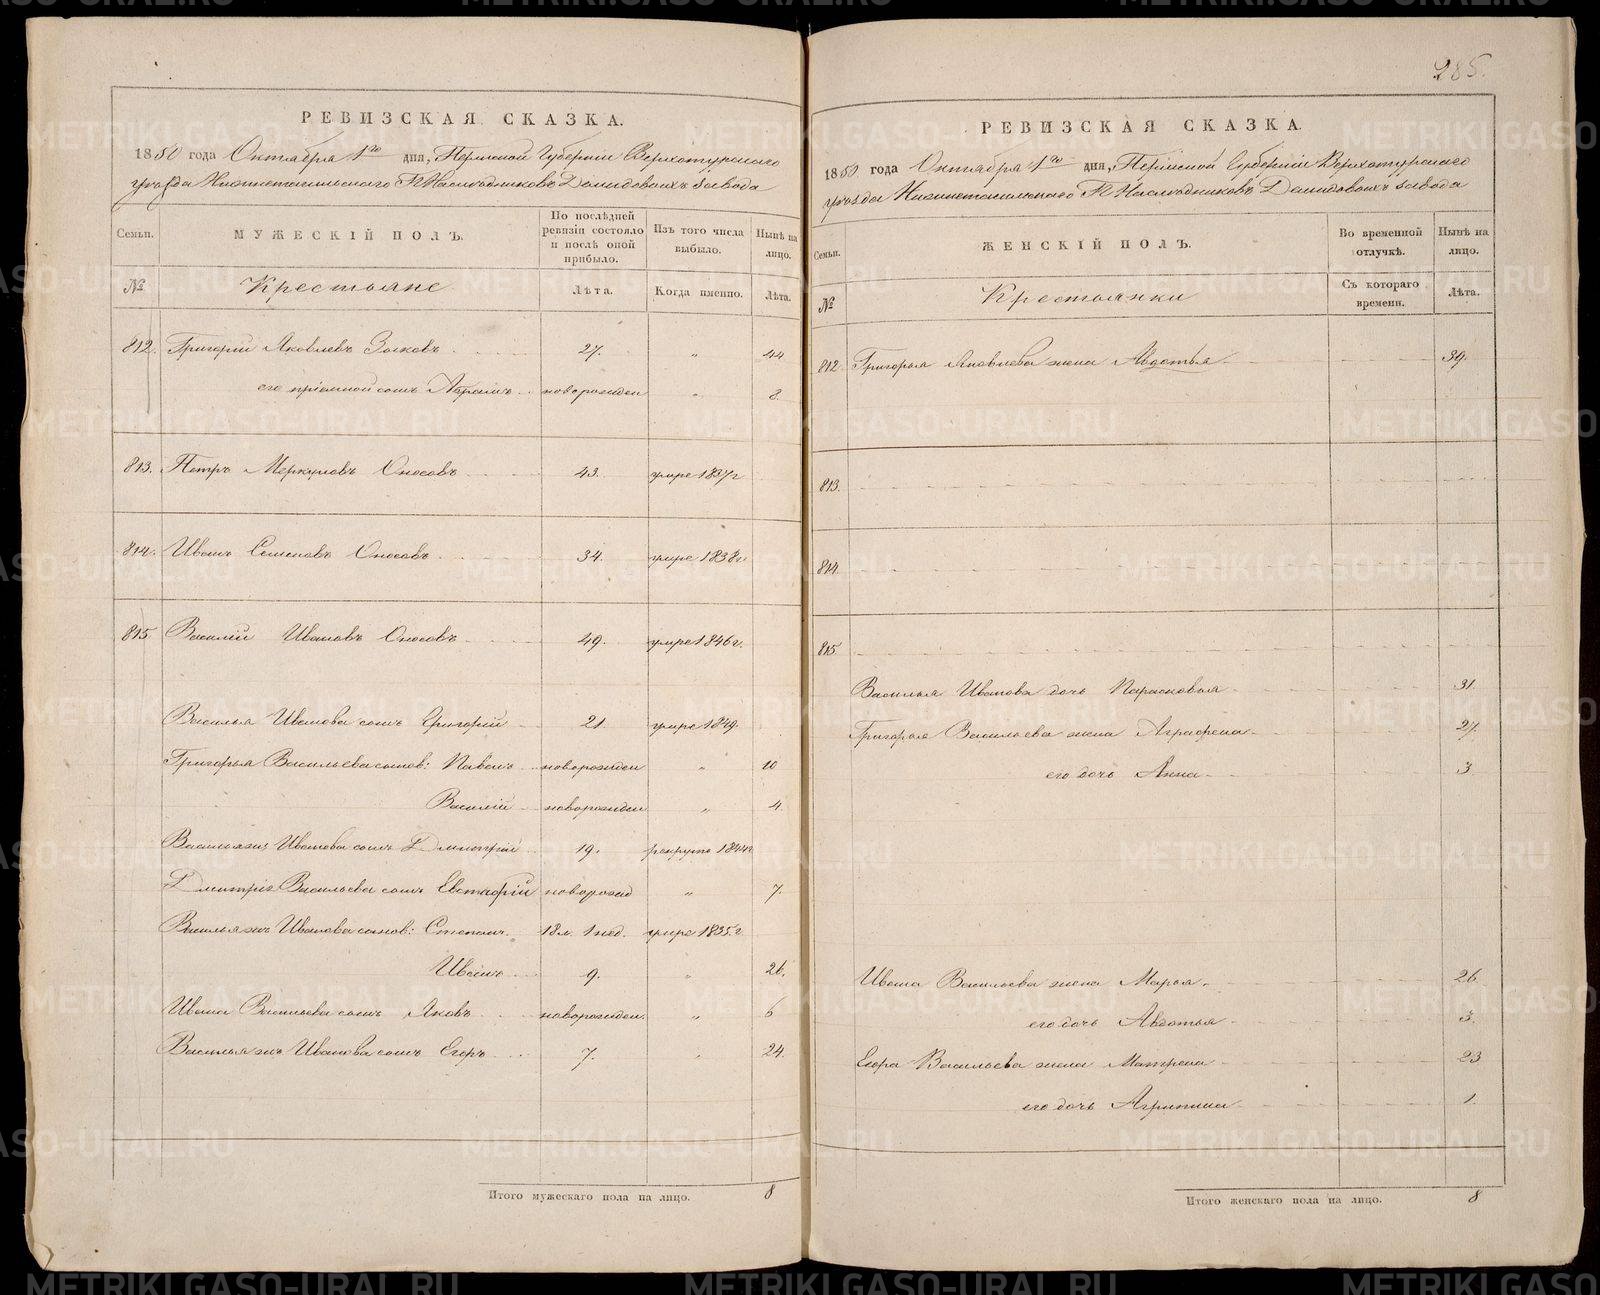 285.
РЕВИЗСКАЯ СКАЗКА.
1850 года Октября 1го дня, Пермской Губернiи Верхотурскаго
уѣзда Нижнетагильскаго Гг. Наслѣдниковъ Демидовыхъ завода
Семьи. МУЖЕСКІЙ ПОЛЪ. По послѣдней ревизіи состояло и послѣ оной прибыло. Изъ того числа выбыло. Нынѣ на лицо.
№ Крестьяне Лѣта. Когда именно. Лѣта.
812. Григорiй Яковлевъ 27. „ 44
его прiемной сынъ Абрамъ новорожден „ 8.
813. Петръ Меркуловъ Оносовъ 43. умре 1837г
814. Иванъ Семеновъ Оносовъ 34. умре 1838г
815. Василiй Ивановъ Оносовъ 49. умре 1846г.
Василья Иванова сынъ Григорiй 21. умре 1849.
Григорья Васильева сынов: Павелъ новорожден „ 10
Василiй новорожден „ 4.
Васильяжъ Иванова сынъ Дмитрiй 19. рекрутъ 1844г
Дмитрiя Васильева сынъ Евстафiй новорожд „ 7.
Васильяжъ Иванова сынов: Степанъ. 18л. 1 нед. умре 1835.г
Иванъ 9. „ 26.
Ивана Васильева сынъ Яковъ новорожден. „ 6
Васильяжъ Иванова сынъ Егоръ 7. „ 24.
Итого мужескаго пола на лицо. 8
РЕВИЗСКАЯ СКАЗКА.
1850 года Октября 1го дня, Пермской Губернiи Верхотурскаго
уѣзда Нижнетагильскаго Гг. Наслѣдниковъ Демидовыхъ завода
Семьи. ЖЕНСКІЙ ПОЛЪ. Во временной отлучкѣ. Нынѣ на лицо.
№ Крестьянки Съ котораго времени. Лѣта.
812. Григорья Яковлева жена Авдотья 39.
813.
814.
815.
Василья Иванова дочь Парасковья 31.
Григорья Васильева жена Аграфена 27.
его дочь Анна 3.
Ивана Васильева жена Марья 26.
его дочь Авдотья 3.
Егора Васильева жена Матрена 23
его дочь Агрипина 1.
Итого женскаго пола на лицо. 8
METRIKI.GASO-URAL.RU